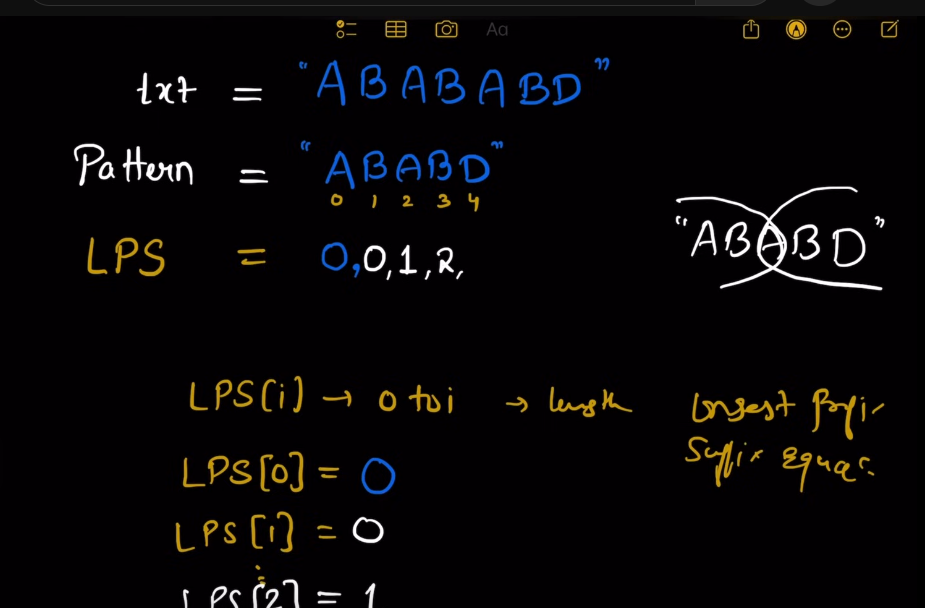 Aa
txt = "ABABABD"
Pattern = "ABABD"
0 1 2 3 4
LPS = 0,0,1,2,
"ABABD"
LPS[i] → 0 to i → length
Longest
Suffix
LPS[0] = 0
LPS[1] = 0
LPS[2] = 1